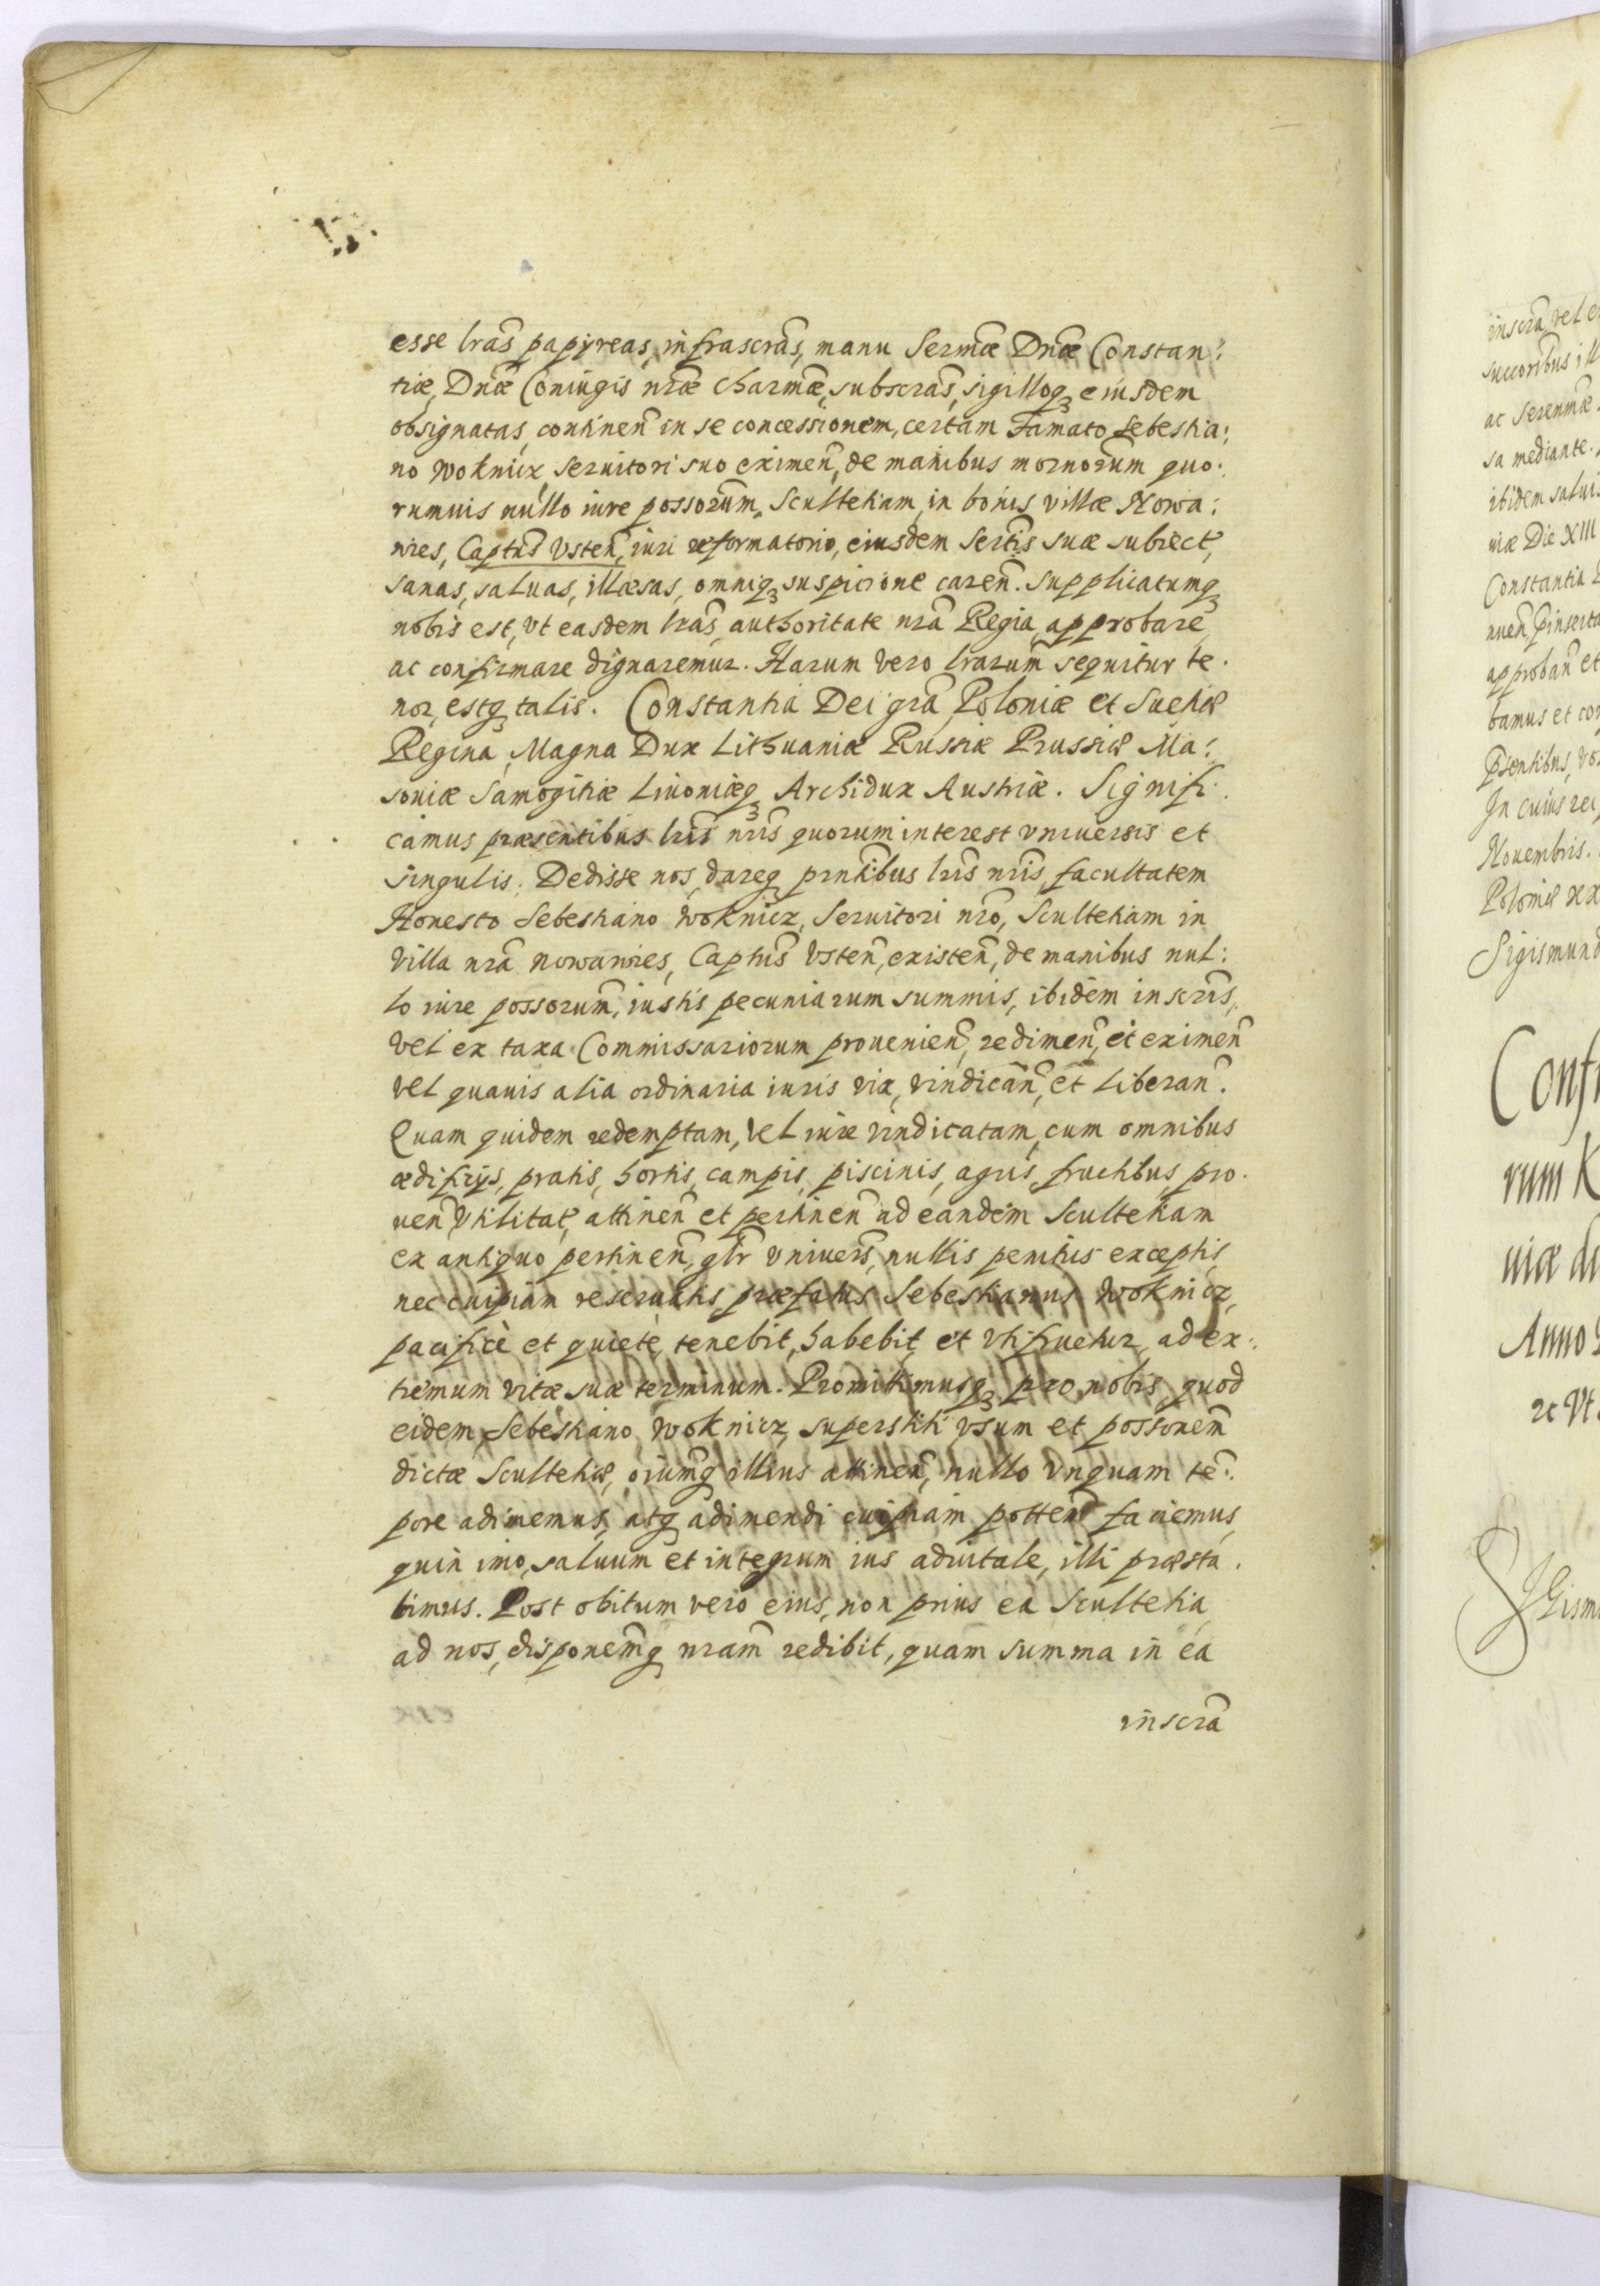 esse lrãs papyreas, infrascrãs, manu Sermæ Dnæ Constan:
tiæ, Dnæ Coniugis nræ charmæ, subscrãs, sigilloq3 eiusdem
obsignatas, continen̄ in se concessionem, certam Famato Sebestia:
no Woknicz, Seruitori suo eximen̄, de manibus mornorum quo:
rumuis nullo iure possorum, Scultetiam, in bonis villæ Nowa:
wies, Captūs Vsten̄, iuri reformatorio, eiusdem Sertis suæ subiect,
sanas, saluas, illæsas, omniq3 suspicione caren̄. Supplicatumq3
nobis est, vt easdem lrãs, authoritate nrã Regia, approbare
ac confirmare dignaremur. Harum vero lrarum sequitur te.
nor, estq3 talis. Constantia Dei grã, Poloniæ et Suetiæ
Regina, Magna Dux Lithuaniæ Russiæ Prussiæ Ma:
soniæ Samogitiæ Liuoniæq3 Archidux Austriæ. Signifi.
camus præsentibus lrĩs nrĩs quorum interest vniuersis et
singulis. Dedisse nos, dareq3 prntibus lrĩs nrĩs, facultatem
Honesto Sebestiano Woknicz, Seruitori nrõ, Scultetiam in
villa nrã Nowawies, Captũs Vsten̄, existen̄, de manibus nul:
lo iure possorum, iustis pecuniarum summis, ibidem inscrĩs,
vel ex taxa Commissariorum prouenien̄, redimen̄, et eximen̄
vel quauis alia ordinaria iuris via, vindican̄, et liberan̄.
Quam quidem redemptam, vel iure vindicatam, cum omnibus
ædificijs, pratis, hortis, campis, piscinis, agris, fructibus, pro.
uen̄ Vtilitat, attinen̄ et pertinen̄ ad eandem Scultetiam
ex antiquo pertinen̄, glr vniuers̄, nullis penitus exceptis,
nec cuipiam reseruatis, præfatus Sebestianus Woknicz,
pacificè et quietè, tenebit, habebit, et vtifruetur, ad ex:
tremum vitæ suæ terminum. Promittimusq3 pro nobis, quod
eidem Sebestiano Woknicz, superstiti vsum et possonem̄
dictæ Scultetiæ, oiumq3 illius attinen̄, nullo vnquam te:
pore adimemus, atq3 adimendi cuipiam pottem̄ faciemus,
quin imo, saluum et integrum ius aduitale, illi præsta.
bimus. Post obitum vero eius, non prius ea Scultetia
ad nos, disponem̄q3 nram̄ redibit, quam summa in ea
inscrã
inscrã vel e
succoribus ill
ac Serenmæ
sa mediante.
ibidem saluis
niæ Die XIII
Constantia
approban̄ et
bamus et con
In cuius rei
Nouembris.
Poloniæ XX
Sigismund
Confi
rum K
niæ du
Anno